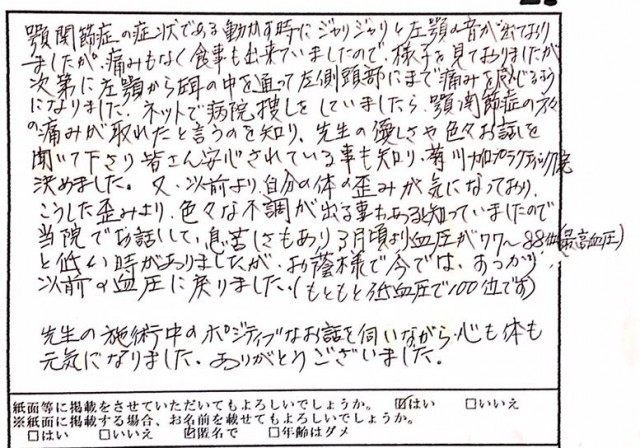 顎関節症の症状である動かす時にジャリジャリと左顎の音が出ており
ましたが、痛みもなく食事も出来ていましたので、様子を見ておりましたが
次第に左顎から耳の中を通って左側頭部にまで痛みを感じるよう
になりました。ネットで病院捜しをしていましたら、顎関節症の方々
の痛みが取れたと言うのを知り、先生の優しさや色々お話を
聞いて下さり皆さん安心されている事も知り、菊川カイロプラクティック院
決めました。又、以前より、自分の体の歪みが気になっており、
こうした歪みより、色々な不調が出る事もあると知っていましたので
当院でお話しして、息苦しさもあり3月頃より血圧が77〜88位(最高血圧)
と低い時がありましたが、お蔭様で今では、すっかり
以前の血圧に戻りました。(もともと低血圧で100位です)
先生の施術中のポジティブなお話を伺いながら、心も体も
元気になりました。ありがとうございました。
紙面等に掲載をさせていただいてもよろしいでしょうか。 ☑はい □いいえ
※紙面に掲載する場合、お名前を載せてもよろしいでしょうか。
□はい □いいえ ☑匿名で □年齢はダメ